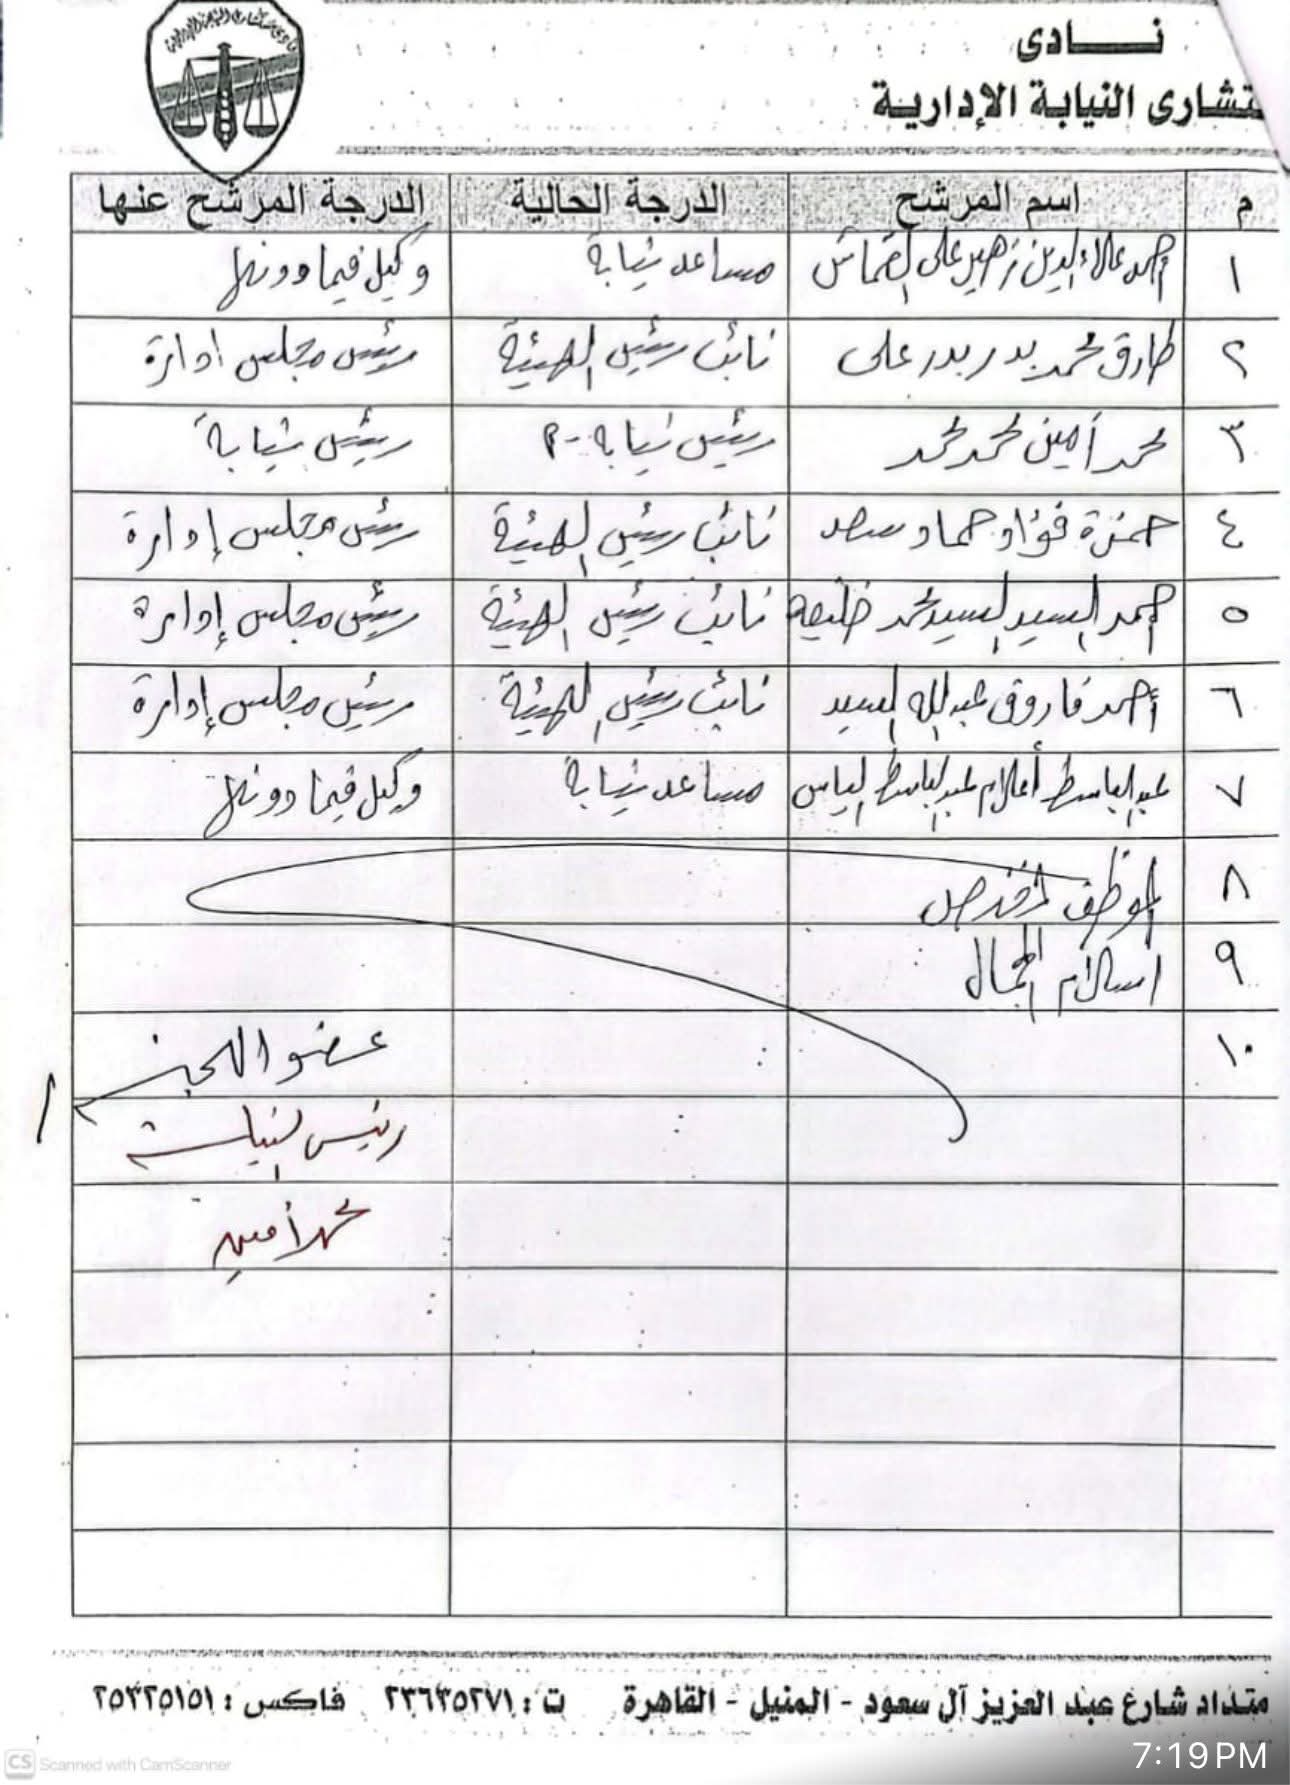 نادى
تشارى النيابة الإدارية
م اسم المرشح الدرجة الحالية الدرجة المرشح عنها
١ أحمد علاء الدين زهير على القماش مساعد نيابة وكيل فيما دونها
٢ طارق محمد بدر بدر على نائب رئيس الهيئة رئيس مجلس ادارة
٣ محمد أمين محمد محمد رئيس نيابة رئيس نيابة
٤ حمزة فؤاد حماد سعد نائب رئيس الهيئة رئيس مجلس إدارة
٥ احمد السيد السيد محمد خليفة نائب رئيس الهيئة رئيس مجلس إدارة
٦ أحمد فاروق عبد الله السيد نائب رئيس الهيئة رئيس مجلس إدارة
٧ عبد الباسط أعلام عبد الباسط الياس مساعد نيابة وكيل فيما دونها
٨ الموظف المختص
٩ اسلام الجمال
١٠ عضو اللجنة
رئيس النيابة
محمد أمين
متداد شارع عبد العزيز آل سعود - المنيل - القاهرة ت : ٢٣٦٣٥٢٧١ فاكس : ٢٥٣٢٥١٥١
CS Scanned with CamScanner
7:19 PM